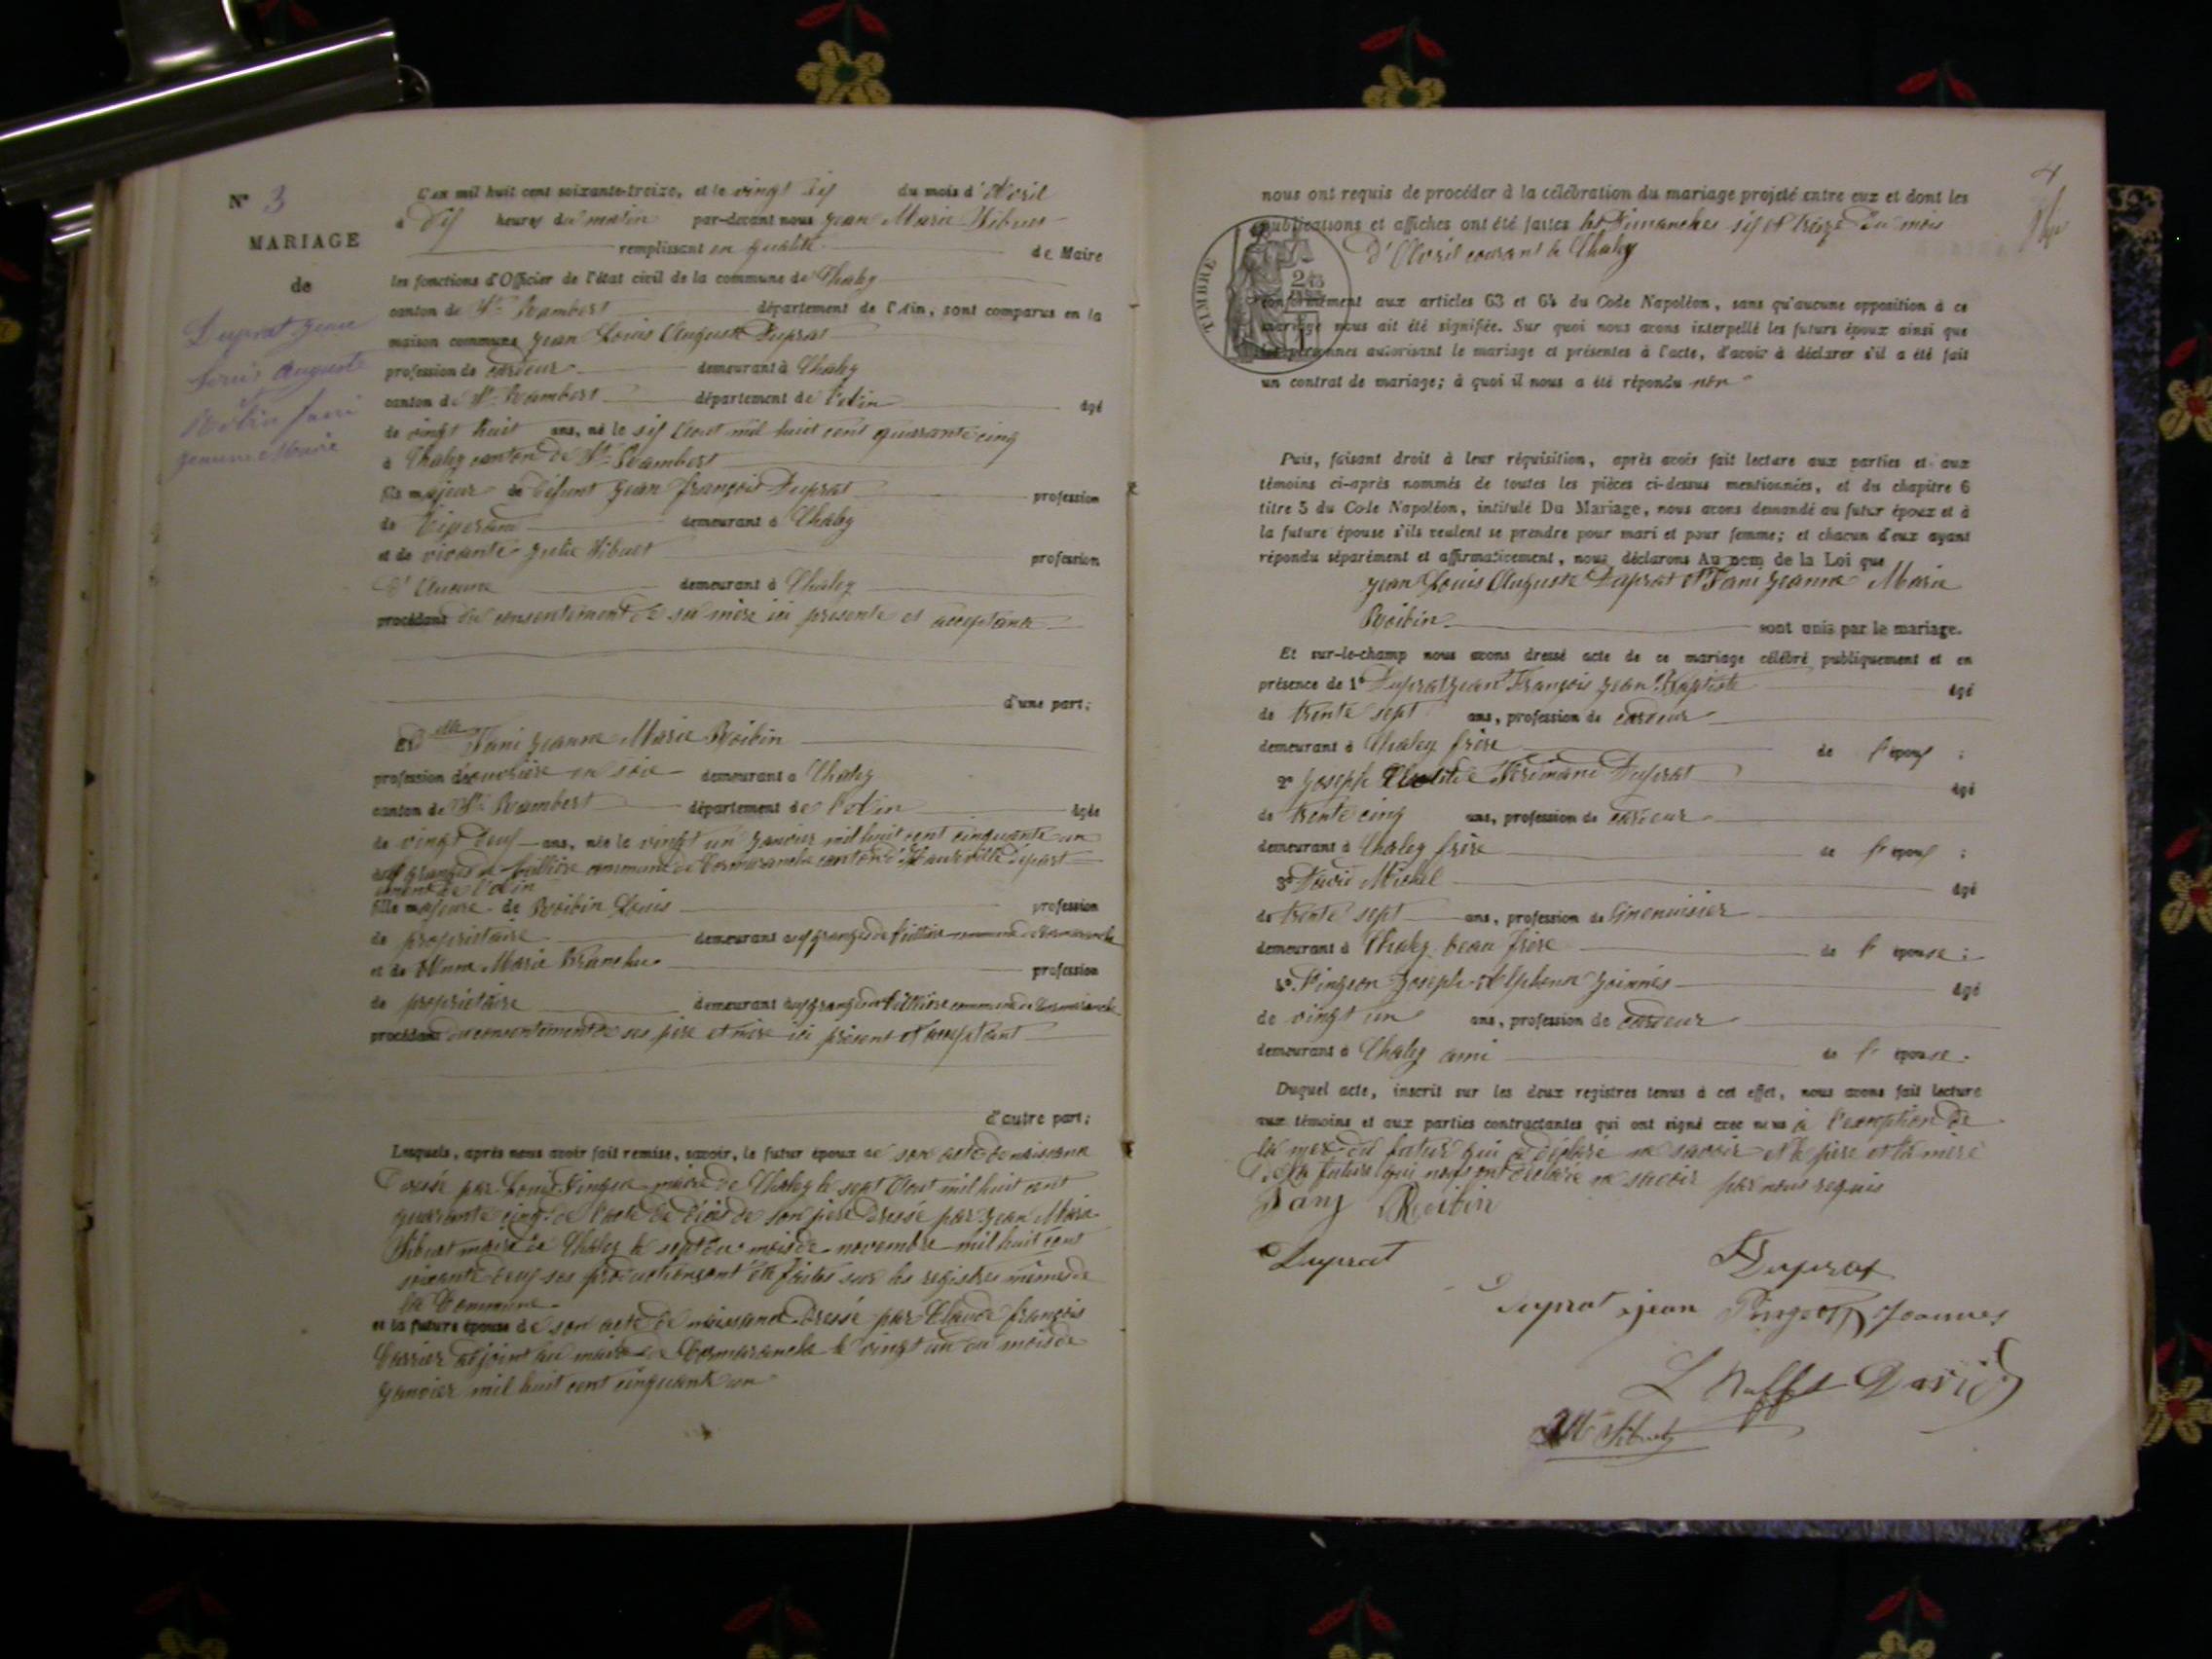 N° 3
MARIAGE
de
Duprat Jean
Louis Auguste
et
Roibin Fani
Jeanne Marie
L'an mil huit cent soixante-treize, et le vingt six du mois d'Avril
à dix heures du matin par-devant nous Jean Marie Sibuet
remplissant en qualité de Maire
les fonctions d'Officier de l'état civil de la commune de Chaley
canton de St Rambert département de l'Ain, sont comparus en la
maison commune Jean Louis Auguste Duprat
profession de cardeur demeurant à Chaley
canton de St Rambert département de l'Ain âgé
de vingt huit ans, né le six Aout mil huit cent quarrante cinq
à Chaley canton de St Rambert
fils majeur de défunt Jean françois Duprat profession
de demeurant à Chaley
et de vivante Julie Sibuet profession
d'Aucune demeurant à Chaley
procédant du consentement de sa mère ici presente et acceptante
d'une part;
Et Delle Fani Jeanne Marie Roibin
profession d'ouvrière en soie demeurant à Chaley
canton de St Rambert département de l'Ain âgée
de vingt deux ans, née le vingt un Janvier mil huit cent cinquante un
aux granges de commune de Cormaranche canton d'Hauteville départ
ement de l'Ain
fille majeure de Roibin Louis profession
de propriétaire demeurant aux granges de commune de Cormaranche
et de Anne Marie profession
de propriétaire demeurant aux granges de commune de Cormaranche
procédant du consentement de ses père et mère ici présent et acceptant
d'autre part;
Lesquels, après nous avoir fait remise, savoir, le futur époux de son acte de naissance
dressé par Louis Pingeon maire de Chaley le sept Aout mil huit cent
quarrante cinq de l'acte de décès de son père dressé par Jean Marie
Sibuet maire de Chaley le sept du mois de novembre mil huit cent
soixante deux ses productions ont été faites sur les registres mêmes de
la Commune
et la future épouse de son acte de naissance dressé par Claude françois
adjoint au maire de Cormaranche le vingt un du mois de
Janvier mil huit cent cinquante un
4
nous ont requis de procéder à la célébration du mariage projeté entre eux et dont les
publications et affiches ont été faites les Dimanches six et treize du mois
d'Avril courant à Chaley
TIMBRE
conformément aux articles 63 et 64 du Code Napoléon, sans qu'aucune opposition à ce
mariage nous ait été signifiée. Sur quoi nous avons interpellé les futurs époux ainsi que
les personnes autorisant le mariage et présentes à l'acte, d'avoir à déclarer s'il a été fait
un contrat de mariage; à quoi il nous a été répondu non
Puis, faisant droit à leur réquisition, après avoir fait lecture aux parties et aux
témoins ci-après nommés de toutes les pièces ci-dessus mentionnées, et du chapitre 6
titre 5 du Code Napoléon, intitulé Du Mariage, nous avons demandé au futur époux et à
la future épouse s'ils veulent se prendre pour mari et pour femme; et chacun d'eux ayant
répondu séparément et affirmativement, nous déclarons Au nom de la Loi que
Jean Louis Auguste Duprat et Fani Jeanne Marie
Roibin sont unis par le mariage.
Et sur-le-champ nous avons dressé acte de ce mariage célébré publiquement et en
présence de 1° Duprat Jean François Jean Baptiste âgé
de trente sept ans, profession de cardeur
demeurant à Chaley frère de l'époux;
2° Joseph Ferdinand Duprat âgé
de trente cinq ans, profession de cardeur
demeurant à Chaley frère de l'époux;
3° David Michel âgé
de trente sept ans, profession de menuisier
demeurant à Chaley beau frère de l'épouse;
4° Pingeon Joseph Alphonse Joannès âgé
de vingt un ans, profession de cardeur
demeurant à Chaley ami de l'épouse.
Duquel acte, inscrit sur les deux registres tenus à cet effet, nous avons fait lecture
aux témoins et aux parties contractantes qui ont signé avec nous à l'exception de
la mère du futur qui a déclaré ne savoir et le père et la mère
de la future qui nous ont déclaré ne savoir par nous requis
Fany Roibin
Duprat
Duprat
Duprat jean Pingeon Joannes
David
Sibuet